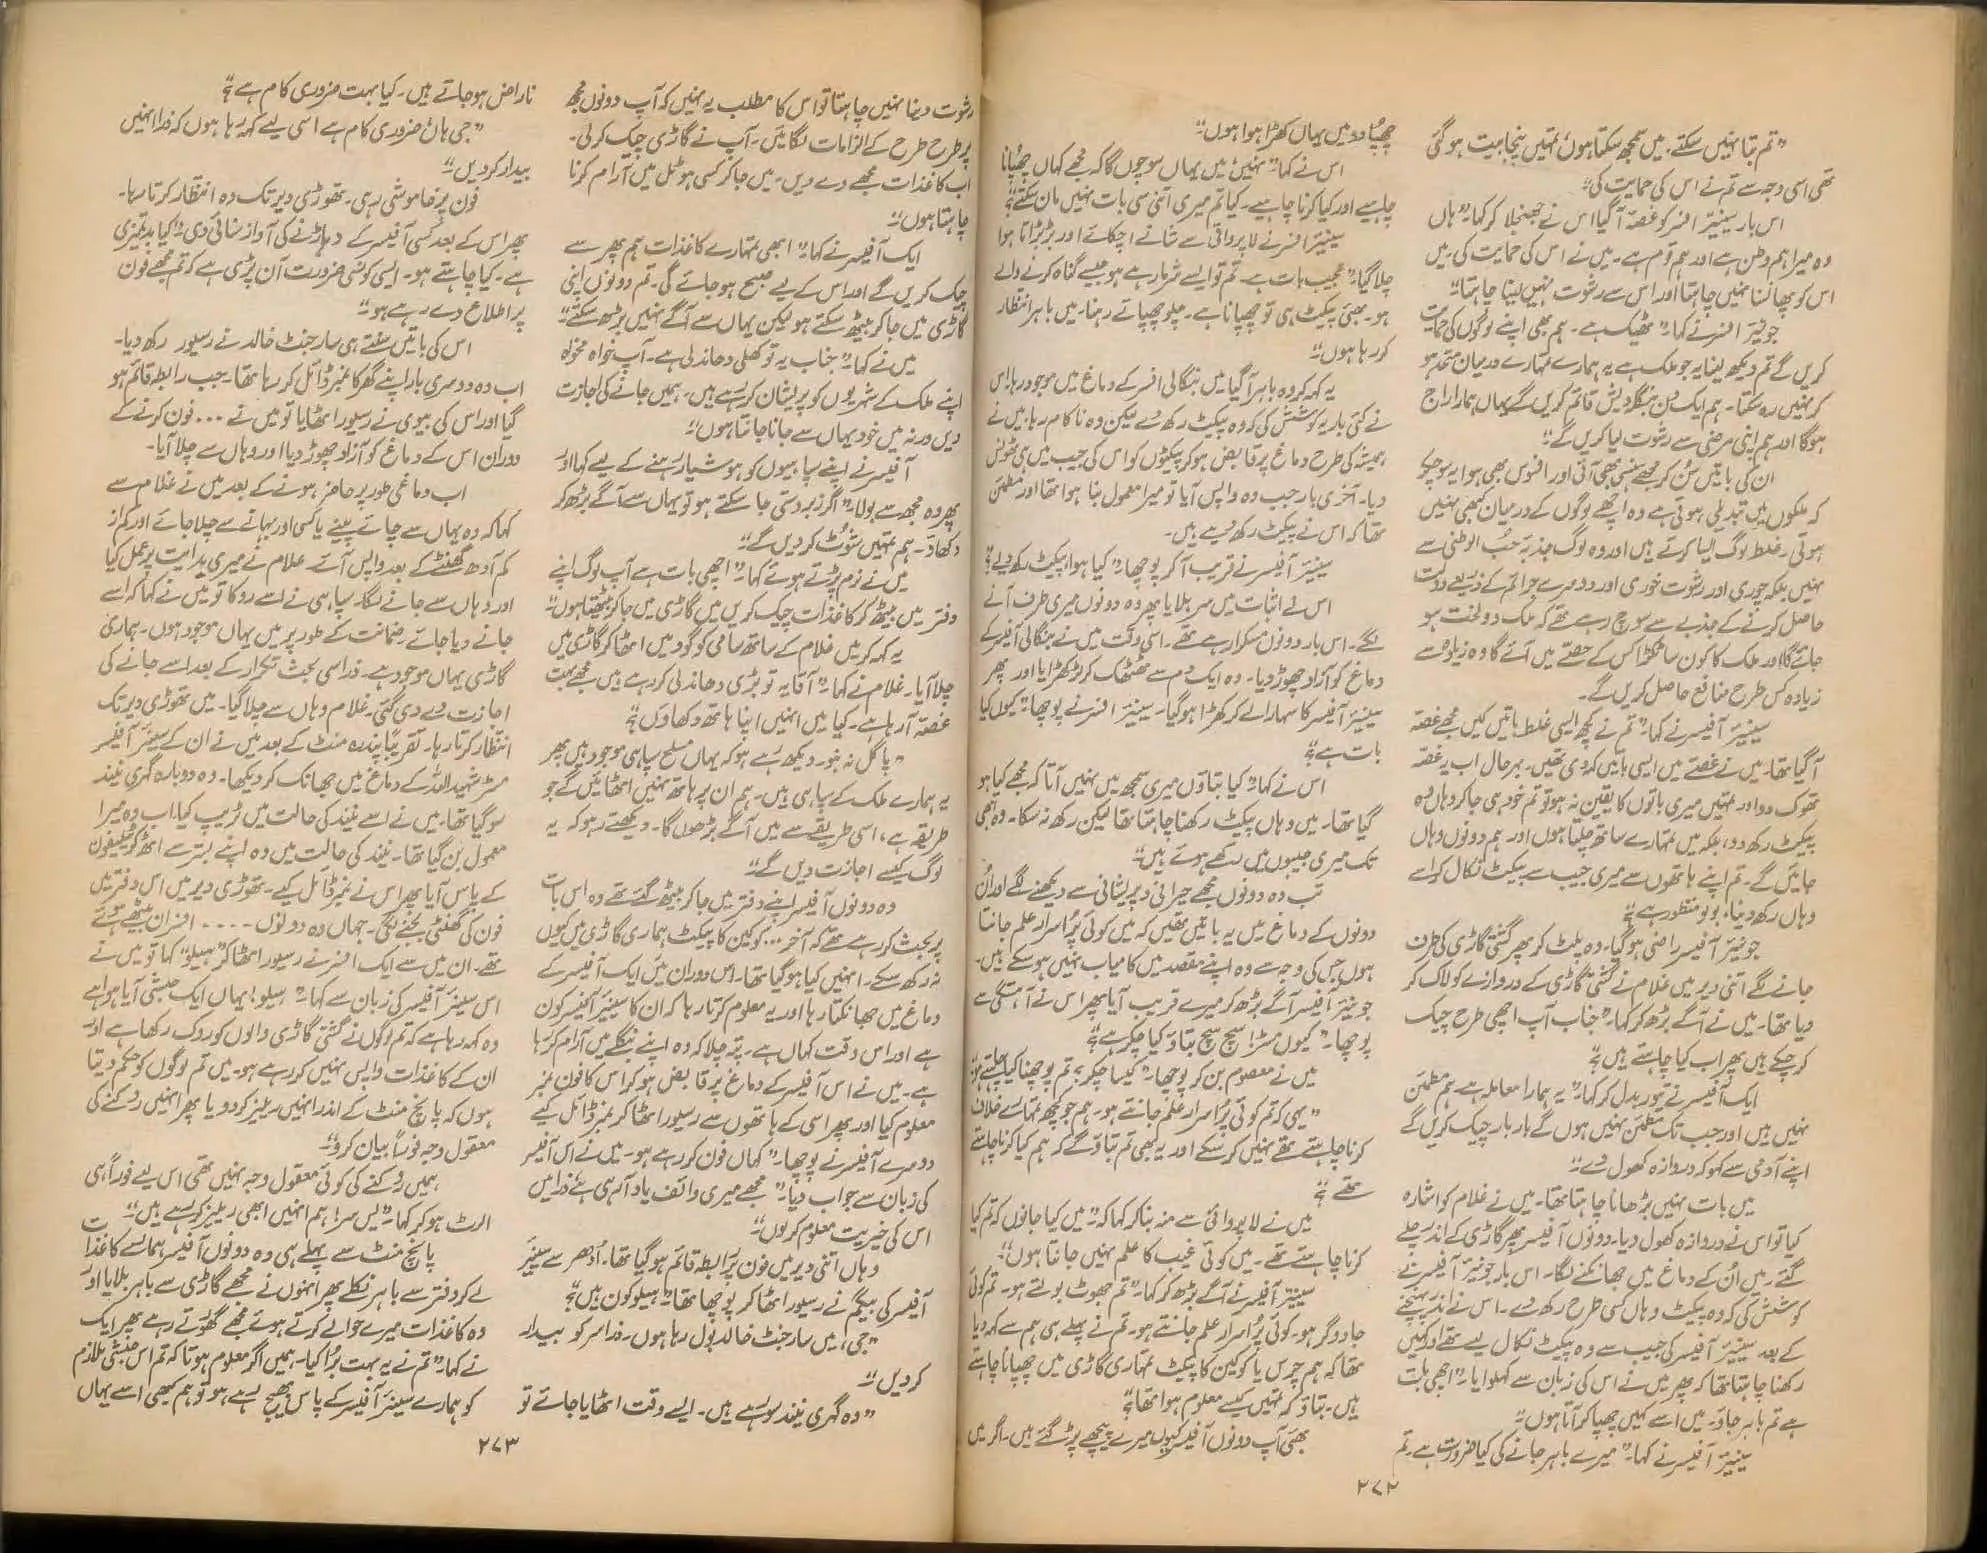 "تم بتا نہیں سکتے۔ میں سمجھ سکتا ہوں، تمہیں پنجابیت ہو گئی
تھی اسی وجہ سے تم نے اس کی حمایت کی"
اس بار سینیئر افسر کو غصہ آگیا اس نے جھنجلا کر کہا "ہاں
وہ میرا ہم وطن ہے اور ہم قوم ہے۔ میں نے اس کی حمایت کی۔ میں
اس کو پھانسنا نہیں چاہتا اور اس سے رشوت نہیں لینا چاہتا"
جونیئر افسر نے کہا "ٹھیک ہے۔ ہم بھی اپنے لوگوں کی حمایت
کریں گے تم دیکھ لینا یہ جو ملک ہے یہ ہمارے تمہارے درمیان متحد ہو
کر نہیں رہ سکتا۔ ہم ایک دن بنگلہ دیش قائم کریں گے یہاں ہمارا راج
ہوگا اور ہم اپنی مرضی سے رشوت لیا کریں گے"
ان کی باتیں سن کر مجھے ہنسی بھی آئی اور افسوس بھی ہوا یہ سوچ کر
کہ ملکوں میں تبدیلی ہوتی ہے وہ اچھے لوگوں کے درمیان کبھی نہیں
ہوتی۔ غلط لوگ ایسا کرتے ہیں اور وہ لوگ جذبہ حب الوطنی سے
نہیں بلکہ چوری اور رشوت خوری اور دوسرے جرائم کے ذریعے دولت
حاصل کرنے کے جذبے سے سوچ رہے تھے کہ ملک دولخت ہو
جائے گا اور ملک کا کون سا ٹکڑا کس کے حصے میں آئے گا وہ زیادہ سے
زیادہ کس طرح منافع حاصل کریں گے۔
سینیئر آفیسر نے کہا "تم نے کچھ ایسی غلط باتیں کیں مجھے غصہ
آگیا تھا۔ میں نے غصے میں ایسی باتیں کہہ دی تھیں۔ بہرحال اب یہ غصہ
تھوک دو اور تمہیں میری باتوں کا یقین نہ ہو تو تم خود ہی جا کر وہاں وہ
پیکٹ رکھ دو، بلکہ میں تمہارے ساتھ چلتا ہوں اور ہم دونوں وہاں
جائیں گے۔ تم اپنے ہاتھوں سے میری جیب سے پیکٹ نکال کر اسے
وہاں رکھ دینا، بولو منظور ہے؟"
جونیئر آفیسر راضی ہوگیا۔ وہ پلٹ کر پھر گشتی گاڑی کی طرف
جانے لگے اتنی دیر میں غلام نے گشتی گاڑی کے دروازے کو لاک کر
دیا تھا۔ میں نے آگے بڑھ کر کہا "جناب آپ اچھی طرح چیک
کر چکے ہیں پھر اب کیا چاہتے ہیں؟"
ایک آفیسر نے تیور بدل کر کہا "یہ ہمارا معاملہ ہے ہم مطمئن
نہیں ہیں اور جب تک مطمئن نہیں ہوں گے بار بار چیک کریں گے
اپنے آدمی سے کہو کہ دروازہ کھول دے"
میں بات نہیں بڑھانا چاہتا تھا۔ میں نے غلام کو اشارہ
کیا تو اس نے دروازہ کھول دیا۔ دونوں آفیسر پھر گاڑی کے اندر چلے
گئے۔ میں ان کے دماغ میں جھانکنے لگا۔ اس بار جونیئر آفیسر نے
کوشش کی کہ وہ پیکٹ وہاں کسی طرح رکھ دے۔ اس نے اندر پہنچنے
کے بعد سینیئر آفیسر کی جیب سے وہ پیکٹ نکال لیے تھے اور کہیں
رکھنا چاہتا تھا کہ پھر میں نے اس کی زبان سے کہلوایا "اچھی بات
ہے تم باہر جاؤ۔ میں اسے کہیں چھپا کر آتا ہوں"
سینیئر آفیسر نے کہا "میرے باہر جانے کی کیا ضرورت ہے۔ تم
چھپا دو میں یہاں کھڑا ہوا ہوں"
اس نے کہا "نہیں، میں یہاں سوچوں گا کہ مجھے کہاں چھپانا
چاہیے اور کیا کرنا چاہیے۔ کیا تم میری اتنی سی بات نہیں مان سکتے؟"
سینیئر افسر نے لاپروائی سے شانے اچکائے اور بڑبڑاتا ہوا
چلا گیا "عجیب بات ہے۔ تم تو ایسے شرما رہے ہو جیسے گناہ کرنے والے
ہو۔ بھئی پیکٹ ہی تو چھپانا ہے۔ چلو چھپاتے رہنا۔ میں باہر انتظار
کر رہا ہوں"
یہ کہہ کر وہ باہر آگیا میں بنگالی افسر کے دماغ میں موجود رہا۔ اس
نے کئی بار یہ کوشش کی کہ وہ پیکٹ رکھ دے لیکن وہ ناکام رہا۔ میں نے
ہمیشہ کی طرح دماغ پر قابض ہو کر پیکٹوں کو اس کی جیب میں ہی ٹھونس
دیا۔ آخری بار جب وہ واپس آیا تو میرا معمول بنا ہوا تھا اور مطمئن
تھا کہ اس نے پیکٹ رکھ دیے ہیں۔
سینیئر آفیسر نے قریب آکر پوچھا "کیا ہوا، پیکٹ رکھ دیے؟"
اس نے اثبات میں سر ہلایا پھر وہ دونوں میری طرف آنے
لگے۔ اس بار دونوں مسکرا رہے تھے۔ اسی وقت میں نے بنگالی آفیسر کے
دماغ کو آزاد چھوڑ دیا۔ وہ ایک دم سے ٹھٹک کر لڑکھڑایا اور پھر
سینیئر آفیسر کا سہارا لے کر کھڑا ہوگیا۔ سینیئر افسر نے پوچھا "کیوں کیا
بات ہے؟"
اس نے کہا "کیا بتاؤں میری سمجھ میں نہیں آتا کہ مجھے کیا ہو
گیا تھا۔ میں وہاں پیکٹ رکھنا چاہتا تھا لیکن رکھ نہ سکا۔ وہ ابھی
تک میری جیبوں میں رکھے ہوئے ہیں"
تب وہ دونوں مجھے حیرانی و پریشانی سے دیکھنے لگے اور ان
دونوں کے دماغ میں یہ باتیں تھیں کہ میں کوئی پراسرار علم جانتا
ہوں جس کی وجہ سے وہ اپنے مقصد میں کامیاب نہیں ہو سکے ہیں۔
جونیئر آفیسر آگے بڑھ کر میرے قریب آیا پھر اس نے آہستگی سے
پوچھا "کیوں مسٹر! سچ سچ بتاؤ کیا چکر ہے؟"
میں نے معصوم بن کر پوچھا "کیسا چکر؟ تم پوچھنا کیا چاہتے ہو؟"
"یہی کہ تم کوئی پراسرار علم جانتے ہو۔ ہم جو کچھ تمہارے خلاف
کرنا چاہتے تھے نہیں کر سکے اور یہ بھی تم بتاؤ گے کہ ہم کیا کرنا چاہتے
تھے؟"
میں نے لاپروائی سے منہ بنا کر کہا کہ "میں کیا جانوں کہ تم کیا
کرنا چاہتے تھے۔ میں کوئی غیب کا علم نہیں جانتا ہوں"
سینیئر آفیسر نے آگے بڑھ کر کہا "تم جھوٹ بولتے ہو۔ تم کوئی
جادوگر ہو۔ کوئی پراسرار علم جانتے ہو۔ تم نے پہلے ہی ہم سے کہہ دیا
تھا کہ ہم چرس یا کوکین کا پیکٹ تمہاری گاڑی میں چھپانا چاہتے
ہیں۔ بتاؤ کہ تمہیں کیسے معلوم ہوا تھا؟"
بھئی آپ دونوں آفیسر کیوں میرے پیچھے پڑ گئے ہیں۔ اگر میں
۲۷۲
رشوت دینا نہیں چاہتا تو اس کا مطلب یہ نہیں کہ آپ دونوں مجھ
پر طرح طرح کے الزامات لگائیں۔ آپ نے گاڑی چیک کر لی۔
اب کاغذات مجھے دے دیں۔ میں جا کر کسی ہوٹل میں آرام کرنا
چاہتا ہوں"
ایک آفیسر نے کہا "ابھی تمہارے کاغذات ہم پھر سے
چیک کریں گے اور اس کے لیے صبح ہو جائے گی۔ تم دونوں اپنی
گاڑی میں جا کر بیٹھ سکتے ہو لیکن یہاں سے آگے نہیں بڑھ سکتے"
میں نے کہا "جناب یہ تو کھلی دھاندلی ہے۔ آپ خواہ مخواہ
اپنے ملک کے شہریوں کو پریشان کر رہے ہیں۔ ہمیں جانے کی اجازت
دیں ورنہ میں خود یہاں سے جانا جانتا ہوں"
آفیسر نے اپنے سپاہیوں کو ہوشیار رہنے کے لیے کہا اور
پھر وہ مجھ سے بولا "اگر زبردستی جا سکتے ہو تو یہاں سے آگے بڑھ کر
دکھاؤ۔ ہم تمہیں شوٹ کر دیں گے"
میں نے نرم پڑتے ہوئے کہا "اچھی بات ہے آپ لوگ اپنے
دفتر میں بیٹھ کر کاغذات چیک کریں میں گاڑی میں جا کر بیٹھتا ہوں"
یہ کہہ کر میں غلام کے ساتھ سامی کو گود میں اٹھا کر گاڑی میں
چلا آیا۔ غلام نے کہا "آقا یہ تو بڑی دھاندلی کر رہے ہیں مجھے بہت
غصہ آرہا ہے۔ کیا میں انہیں اپنا ہاتھ دکھاؤں؟"
"پاگل نہ بنو۔ دیکھ رہے ہو کہ یہاں مسلح سپاہی موجود ہیں پھر
یہ ہمارے ملک کے سپاہی ہیں۔ ہم ان پر ہاتھ نہیں اٹھائیں گے جو
طریقہ ہے، اسی طریقے سے میں آگے بڑھوں گا۔ دیکھتے رہو کہ یہ
لوگ کیسے اجازت دیں گے"
وہ دونوں آفیسر اپنے دفتر میں جا کر بیٹھ گئے تھے وہ اس بات
پر بحث کر رہے تھے کہ آخر... کوکین کا پیکٹ ہماری گاڑی میں کیوں
نہ رکھ سکے۔ انہیں کیا ہوگیا تھا۔ اس دوران میں ایک آفیسر کے
دماغ میں جھانکتا رہا اور یہ معلوم کرتا رہا کہ ان کا سینیئر آفیسر کون
ہے اور اس وقت کہاں ہے۔ پتہ چلا کہ وہ اپنے بنگلے میں آرام کر رہا
ہے۔ میں نے اس آفیسر کے دماغ پر قابض ہو کر اس کا فون نمبر
معلوم کیا اور پھر اسی کے ہاتھوں سے ریسیور اٹھا کر نمبر ڈائل کیے
دوسرے آفیسر نے پوچھا "کہاں فون کر رہے ہو۔ میں نے اس آفیسر
کی زبان سے جواب دیا "مجھے میری وائف یاد آرہی ہے، ذرا میں
اس کی خیریت معلوم کرلوں"
وہاں اتنی دیر میں فون پر رابطہ قائم ہوگیا تھا۔ ادھر سے سینیئر
آفیسر کی بیگم نے ریسیور اٹھا کر پوچھا تھا "ہیلو کون ہیں؟"
"جی، میں سارجنٹ خالد بول رہا ہوں۔ ذرا سر کو بیدار
کر دیں"
"وہ گہری نیند سو رہے ہیں۔ ایسے وقت اٹھایا جائے تو
ناراض ہو جاتے ہیں۔ کیا بہت ضروری کام ہے؟"
"جی ہاں ضروری کام ہے اسی لیے کہہ رہا ہوں کہ ذرا انہیں
بیدار کر دیں"
فون پر خاموشی رہی۔ تھوڑی دیر تک وہ انتظار کرتا رہا۔
پھر اس کے بعد کسی آفیسر کے دہاڑنے کی آواز سنائی دی "کیا بدتمیزی
ہے۔ کیا چاہتے ہو۔ ایسی کونسی ضرورت آن پڑی ہے کہ تم مجھے فون
پر اطلاع دے رہے ہو"
اس کی باتیں سنتے ہی سارجنٹ خالد نے رسیور رکھ دیا۔
اب وہ دوسری بار اپنے گھر کا نمبر ڈائل کر رہا تھا۔ جب رابطہ قائم ہو
گیا اور اس کی بیوی نے رسیور اٹھایا تو میں نے ... فون کرنے کے
دوران اس کے دماغ کو آزاد چھوڑ دیا اور وہاں سے چلا آیا۔
اب دماغی طور پر حاضر ہونے کے بعد میں نے غلام سے
کہا کہ وہ یہاں سے چائے پینے یا کسی اور بہانے سے چلا جائے اور کم از
کم آدھ گھنٹے کے بعد واپس آئے۔ غلام نے میری ہدایت پر عمل کیا
اور وہاں سے جانے لگا۔ سپاہی نے اسے روکا تو میں نے کہا کہ اسے
جانے دیا جائے۔ ضمانت کے طور پر میں یہاں موجود ہوں۔ ہماری
گاڑی یہاں موجود ہے۔ ذرا سی بحث تکرار کے بعد اسے جانے کی
اجازت دے دی گئی۔ غلام وہاں سے چلا گیا۔ میں تھوڑی دیر تک
انتظار کرتا رہا۔ تقریباً پندرہ منٹ کے بعد میں نے ان کے سینیئر آفیسر
مسٹر شہید اللہ کے دماغ میں جھانک کر دیکھا۔ وہ دوبارہ گہری نیند
سو گیا تھا۔ میں نے اسے نیند کی حالت میں ٹریپ کیا۔ اب وہ میرا
معمول بن گیا تھا۔ نیند کی حالت میں وہ اپنے بستر سے اٹھ کر ٹیلیفون
کے پاس آیا پھر اس نے نمبر ڈائل کیے۔ تھوڑی دیر میں اس دفتر میں
فون کی گھنٹی بجنے لگی۔ جہاں وہ دونوں .... افسران بیٹھے ہوئے
تھے۔ ان میں سے ایک افسر نے رسیور اٹھا کر "ہیلو" کہا تو میں نے
اس سینیئر آفیسر کی زبان سے کہا "ہیلو! یہاں ایک حبشی آیا ہوا ہے
وہ کہہ رہا ہے کہ تم لوگوں نے گشتی گاڑی والوں کو روک رکھا ہے اور
ان کے کاغذات واپس نہیں کر رہے ہو۔ میں تم لوگوں کو حکم دیتا
ہوں کہ پانچ منٹ کے اندر انہیں ریلیز کر دو یا پھر انہیں روکنے کی
معقول وجہ فوراً بیان کرو"
ہمیں روکنے کی کوئی معقول وجہ نہیں تھی اس لیے فوراً ہی
الرٹ ہو کر کہا "یس سر! ہم انہیں ابھی ریلیز کر رہے ہیں"
پانچ منٹ سے پہلے ہی وہ دونوں آفیسر ہمارے کاغذات
لے کر دفتر سے باہر نکلے پھر انہوں نے مجھے گاڑی سے باہر بلایا اور
وہ کاغذات میرے حوالے کرتے ہوئے مجھے گھورتے رہے پھر ایک
نے کہا "تم نے یہ بہت برا کیا۔ ہمیں اگر معلوم ہوتا کہ تم اس حبشی ملازم
کو ہمارے سینیئر آفیسر کے پاس بھیج رہے ہو تو ہم کبھی اسے یہاں
۲۷۳